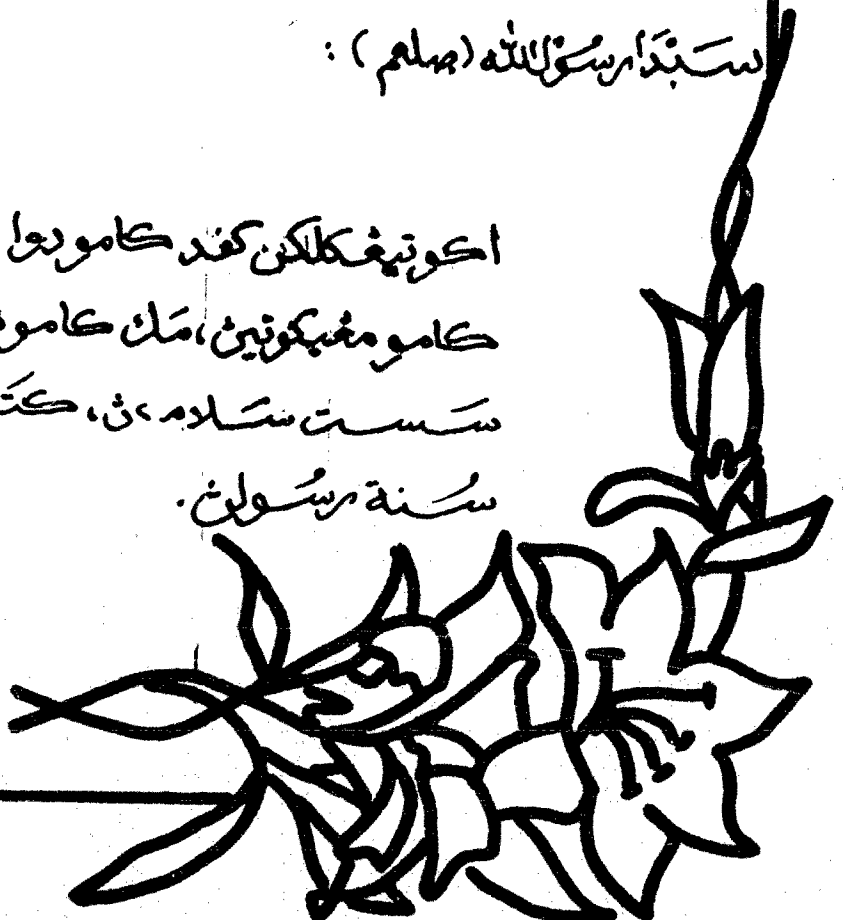 سبدا رسول الله (صلعم) :
اكو تيڠݢلكن كڤد كامو دوا
كامو مڠيكوتيڽ، مك كامو
سست سلام٢ڽ، كت
سنة رسولڽ.